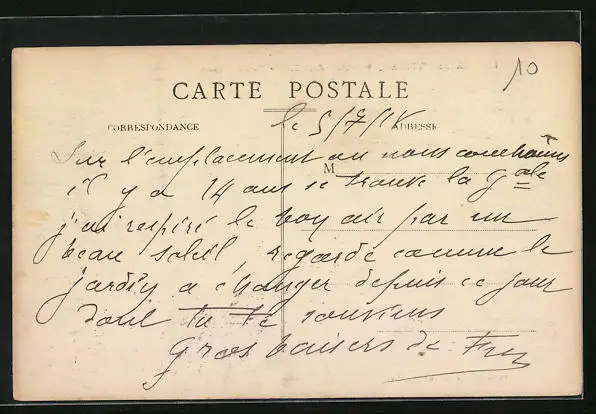 10
CARTE POSTALE
le 5/7/14
CORRESPONDANCE
ADRESSE
M
Sur l'emplacement ou nous couchions
il y a 14 ans se trouve la Gale
j'ai respiré le bon air par un
beau soleil, regarde comme le
jardin a changer depuis ce jour
dont tu te souviens
Gros baisers de